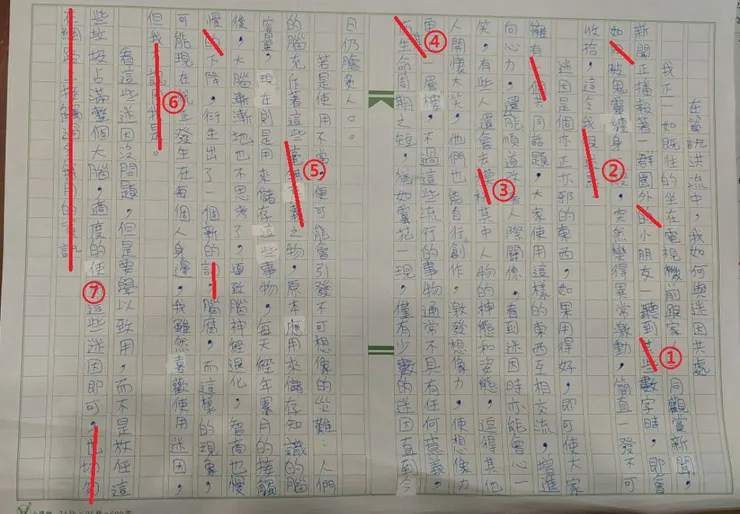 在資訊洪流中，我如何與迷因共處
我正一如既往的坐在電視機前跟家一同觀賞新聞，
新聞正播報著一群國外的小朋友一聽到某些數字時，即會
如同被鬼靈纏身般，突然變得異常激動，簡直一發不可
收拾，這令我
迷因是個亦正亦邪的東西，如果用得好，即可使大家
擁有一個共同話題，大家使用這樣的東西互相交流，增進
向心力，還能順道改善人際關係，看到迷因時亦能會心一
笑，有些人還會去模仿其中人物的神態和姿態，逗得其他
人開懷大笑，他們也能自行創作，激發想像力，使想像力
更層樓，不過這些流行的事物通常不具有任何意義，
生命周期之短，猶如曇花一現，僅有少數的迷因直到今
日仍膾炙人口。
若是使用不當，便可能會引發不可想像的災難：人們
的腦充斥著這些毫無意義之物，原本應用來儲存知識的
容量，現在則是用來儲存這些事物，每天經年累月的接觸
後，大腦漸漸地也不思考了，導致腦神經退化，智商也慢
慢的下降，衍生出了一個新的詞，腦腐，而這樣的現象，
可能現在就在發生在每個人身邊，我雖然喜歡使用迷因，
但我不認我是。
看這些迷因沒問題，但是要學以致用，而不是放任這
些垃圾占滿整個大腦，適度的使這些迷因即可，也切勿
在網路
①
②
③
④
⑤
⑥
⑦